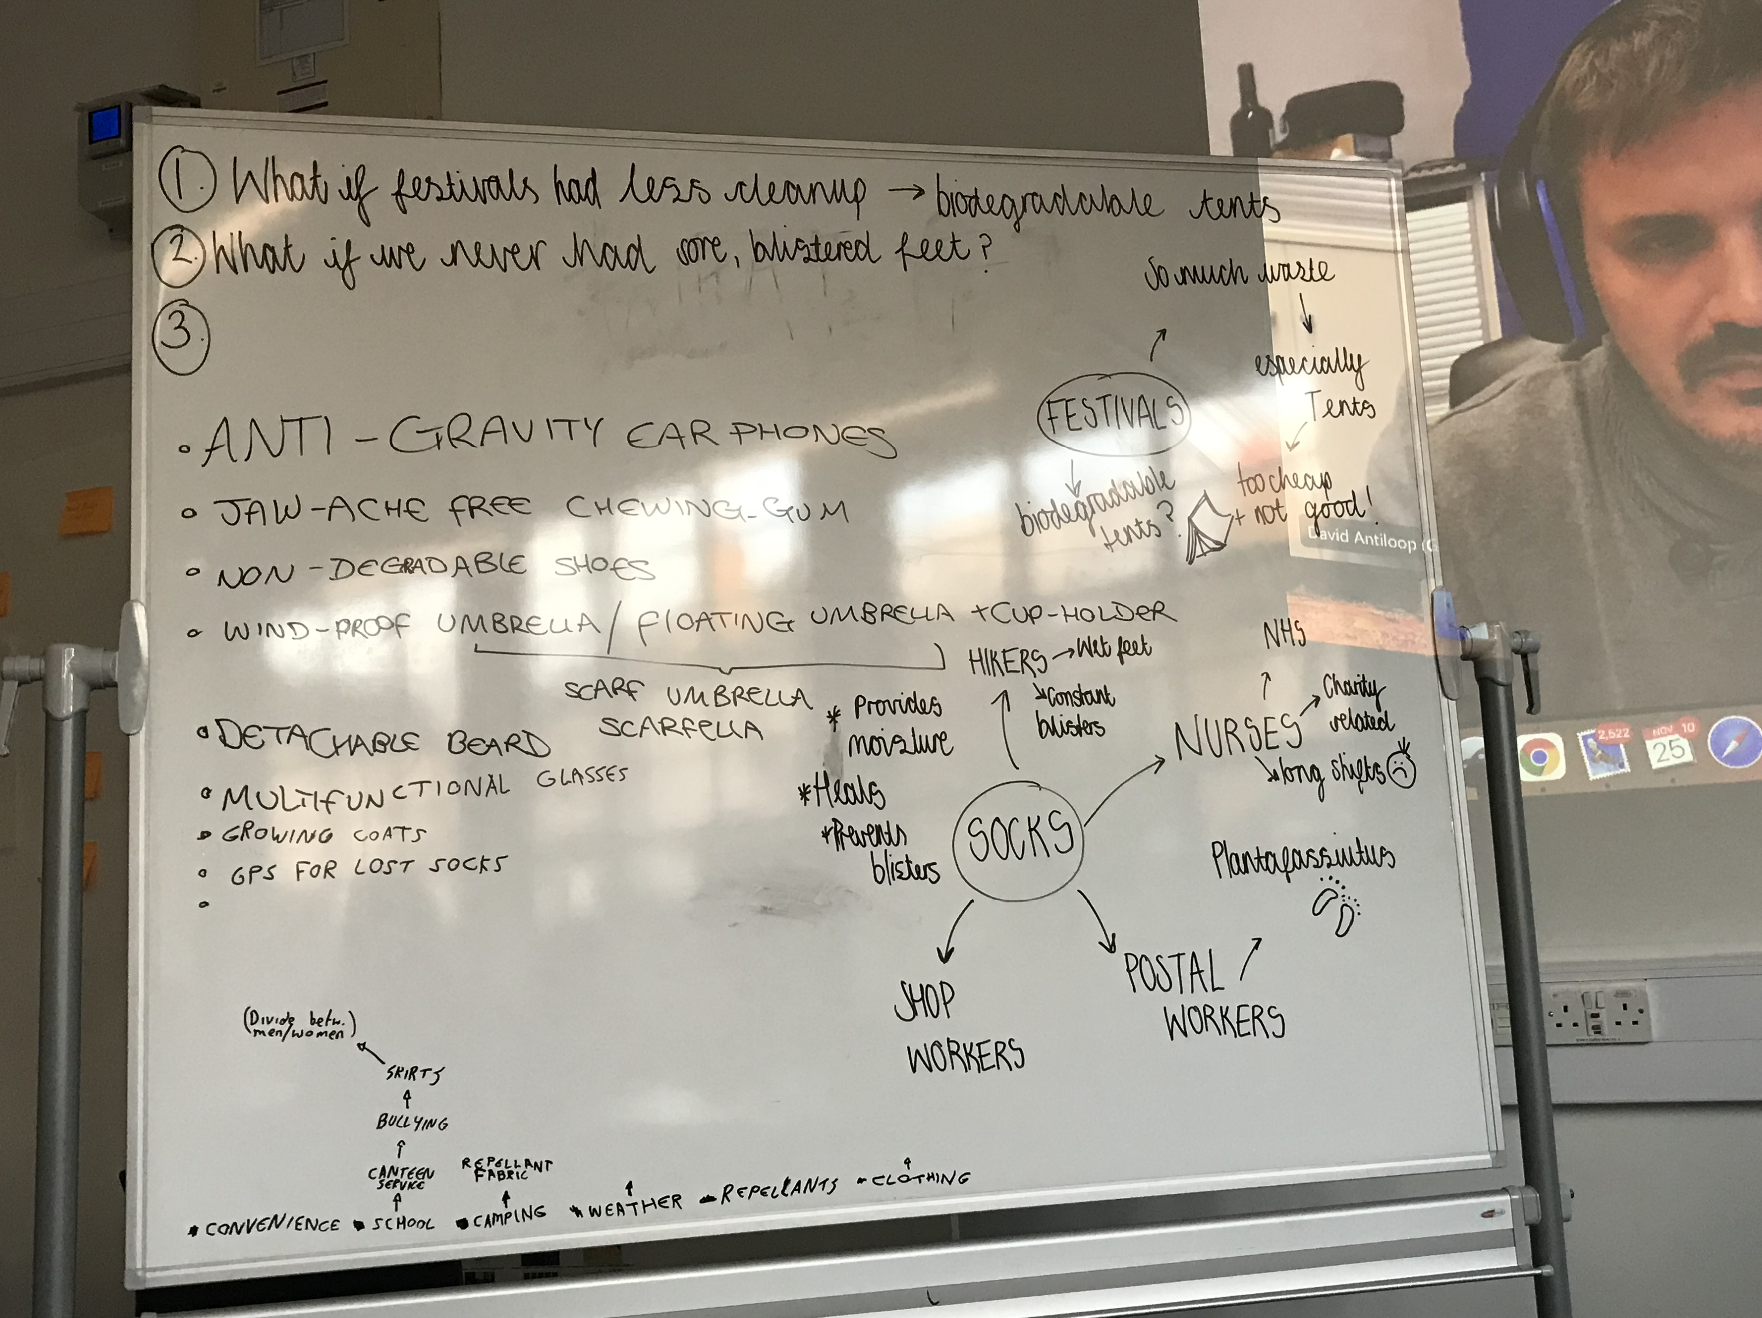 1. What if festivals had less cleanup → biodegradalable tents
2. What if we never had sore, blistered feet?
3.
• ANTI-GRAVITY EARPHONES
• JAW-ACHE FREE CHEWING-GUM
• NON-DEGRADABLE SHOES
• WIND-PROOF UMBRELLA / FLOATING UMBRELLA + CUP-HOLDER
SCARF UMBRELLA
SCARFELLA
• DETACHABLE BEARD
• MULTIFUNCTIONAL GLASSES
• GROWING COATS
• GPS FOR LOST SOCKS
•
So much waste
↓
especially
Tents
FESTIVALS
biodegradable
tents?
too cheap
+ not good!
David Antiloop (
HIKERS → Wet feet
↘ Constant
blisters
* Provides
moisture
* Heals
* Prevents
blisters
SOCKS
NHS
NURSES
Charity
related
↘ long shifts
Plantafassiutus
POSTAL
WORKERS
SHOP
WORKERS
2,522
NOV 10
25
(Divide betw.
men/women)
SKIRTS
↑
BULLYING
↑
CANTEEN
SERVICE
REPELLANT
FABRIC
• CONVENIENCE • SCHOOL • CAMPING • WEATHER - REPELLANTS - CLOTHING